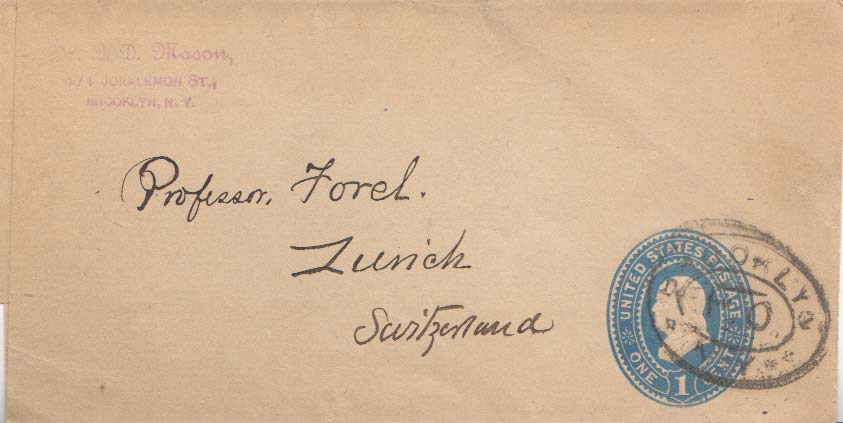 D. Mason,
171 JORALEMON ST.,
BROOKLYN, N. Y.
Professor, Forel.
Zurich
Switzerland
UNITED STATES POSTAGE
ONE 1 CENT
BROOKLYN